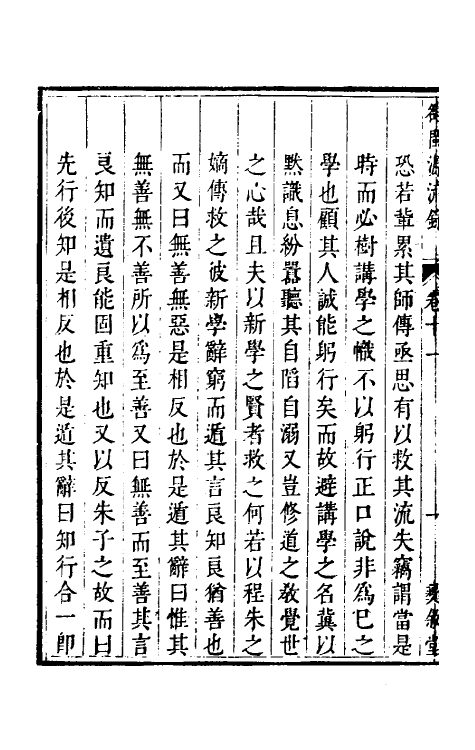 雒閩源流錄 卷十一 十 彝敘堂
恐若輩累其師傳亟思有以救其流失竊謂當是
時而必樹講學之幟不以躬行正口說非為已之
學也顧其人誠能躬行矣而故避講學之名冀以
默識息紛囂聽其自陷自溺又豈修道之敎覺世
之心哉且夫以新學之賢者救之何若以程朱之
嫡傳救之彼新學辭窮而遁其言良知良猶善也
而又曰無善無惡是相反也於是遁其辭曰惟其
無善無不善所以為至善又曰無善而至善其言
良知而遺良能固重知也又以反朱子之故而曰
先行後知是相反也於是遁其辭曰知行合一卽